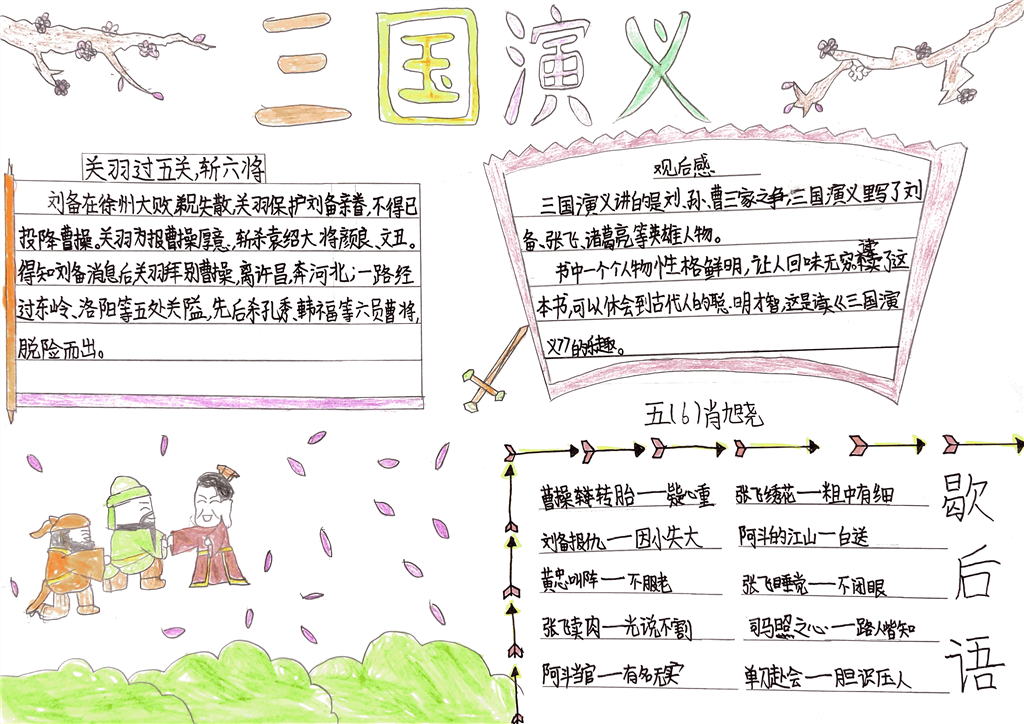 三国演义
关羽过五关,斩六将
刘备在徐州大败,弟兄失散,关羽保护刘备亲眷,不得已
投降曹操。关羽为报曹操厚意,斩杀袁绍大将颜良、文丑。
得知刘备消息后关羽拜别曹操,离许昌,奔河北;一路经
过东岭、洛阳等五处关隘,先后杀孔秀、韩福等六员曹将,
脱险而出。
观后感
三国演义讲的是刘、孙、曹三家之争,三国演义里写了刘
备、张飞、诸葛亮,等英雄人物。
书中一个个人物性格鲜明,让人回味无穷,读了这
本书,可以体会到古代人的聪明才智,这是读《三国演
义》的乐趣。
五(6)肖旭晓
歇后语
曹操转胎——疑心重
张飞绣花——粗中有细
刘备报仇——因小失大
阿斗的江山——白送
黄忠叫阵——不服老
张飞睡觉——不闭眼
张飞卖肉——光说不割
司马照之心——路人皆知
阿斗当官——有名无实
单刀赴会——胆识压人